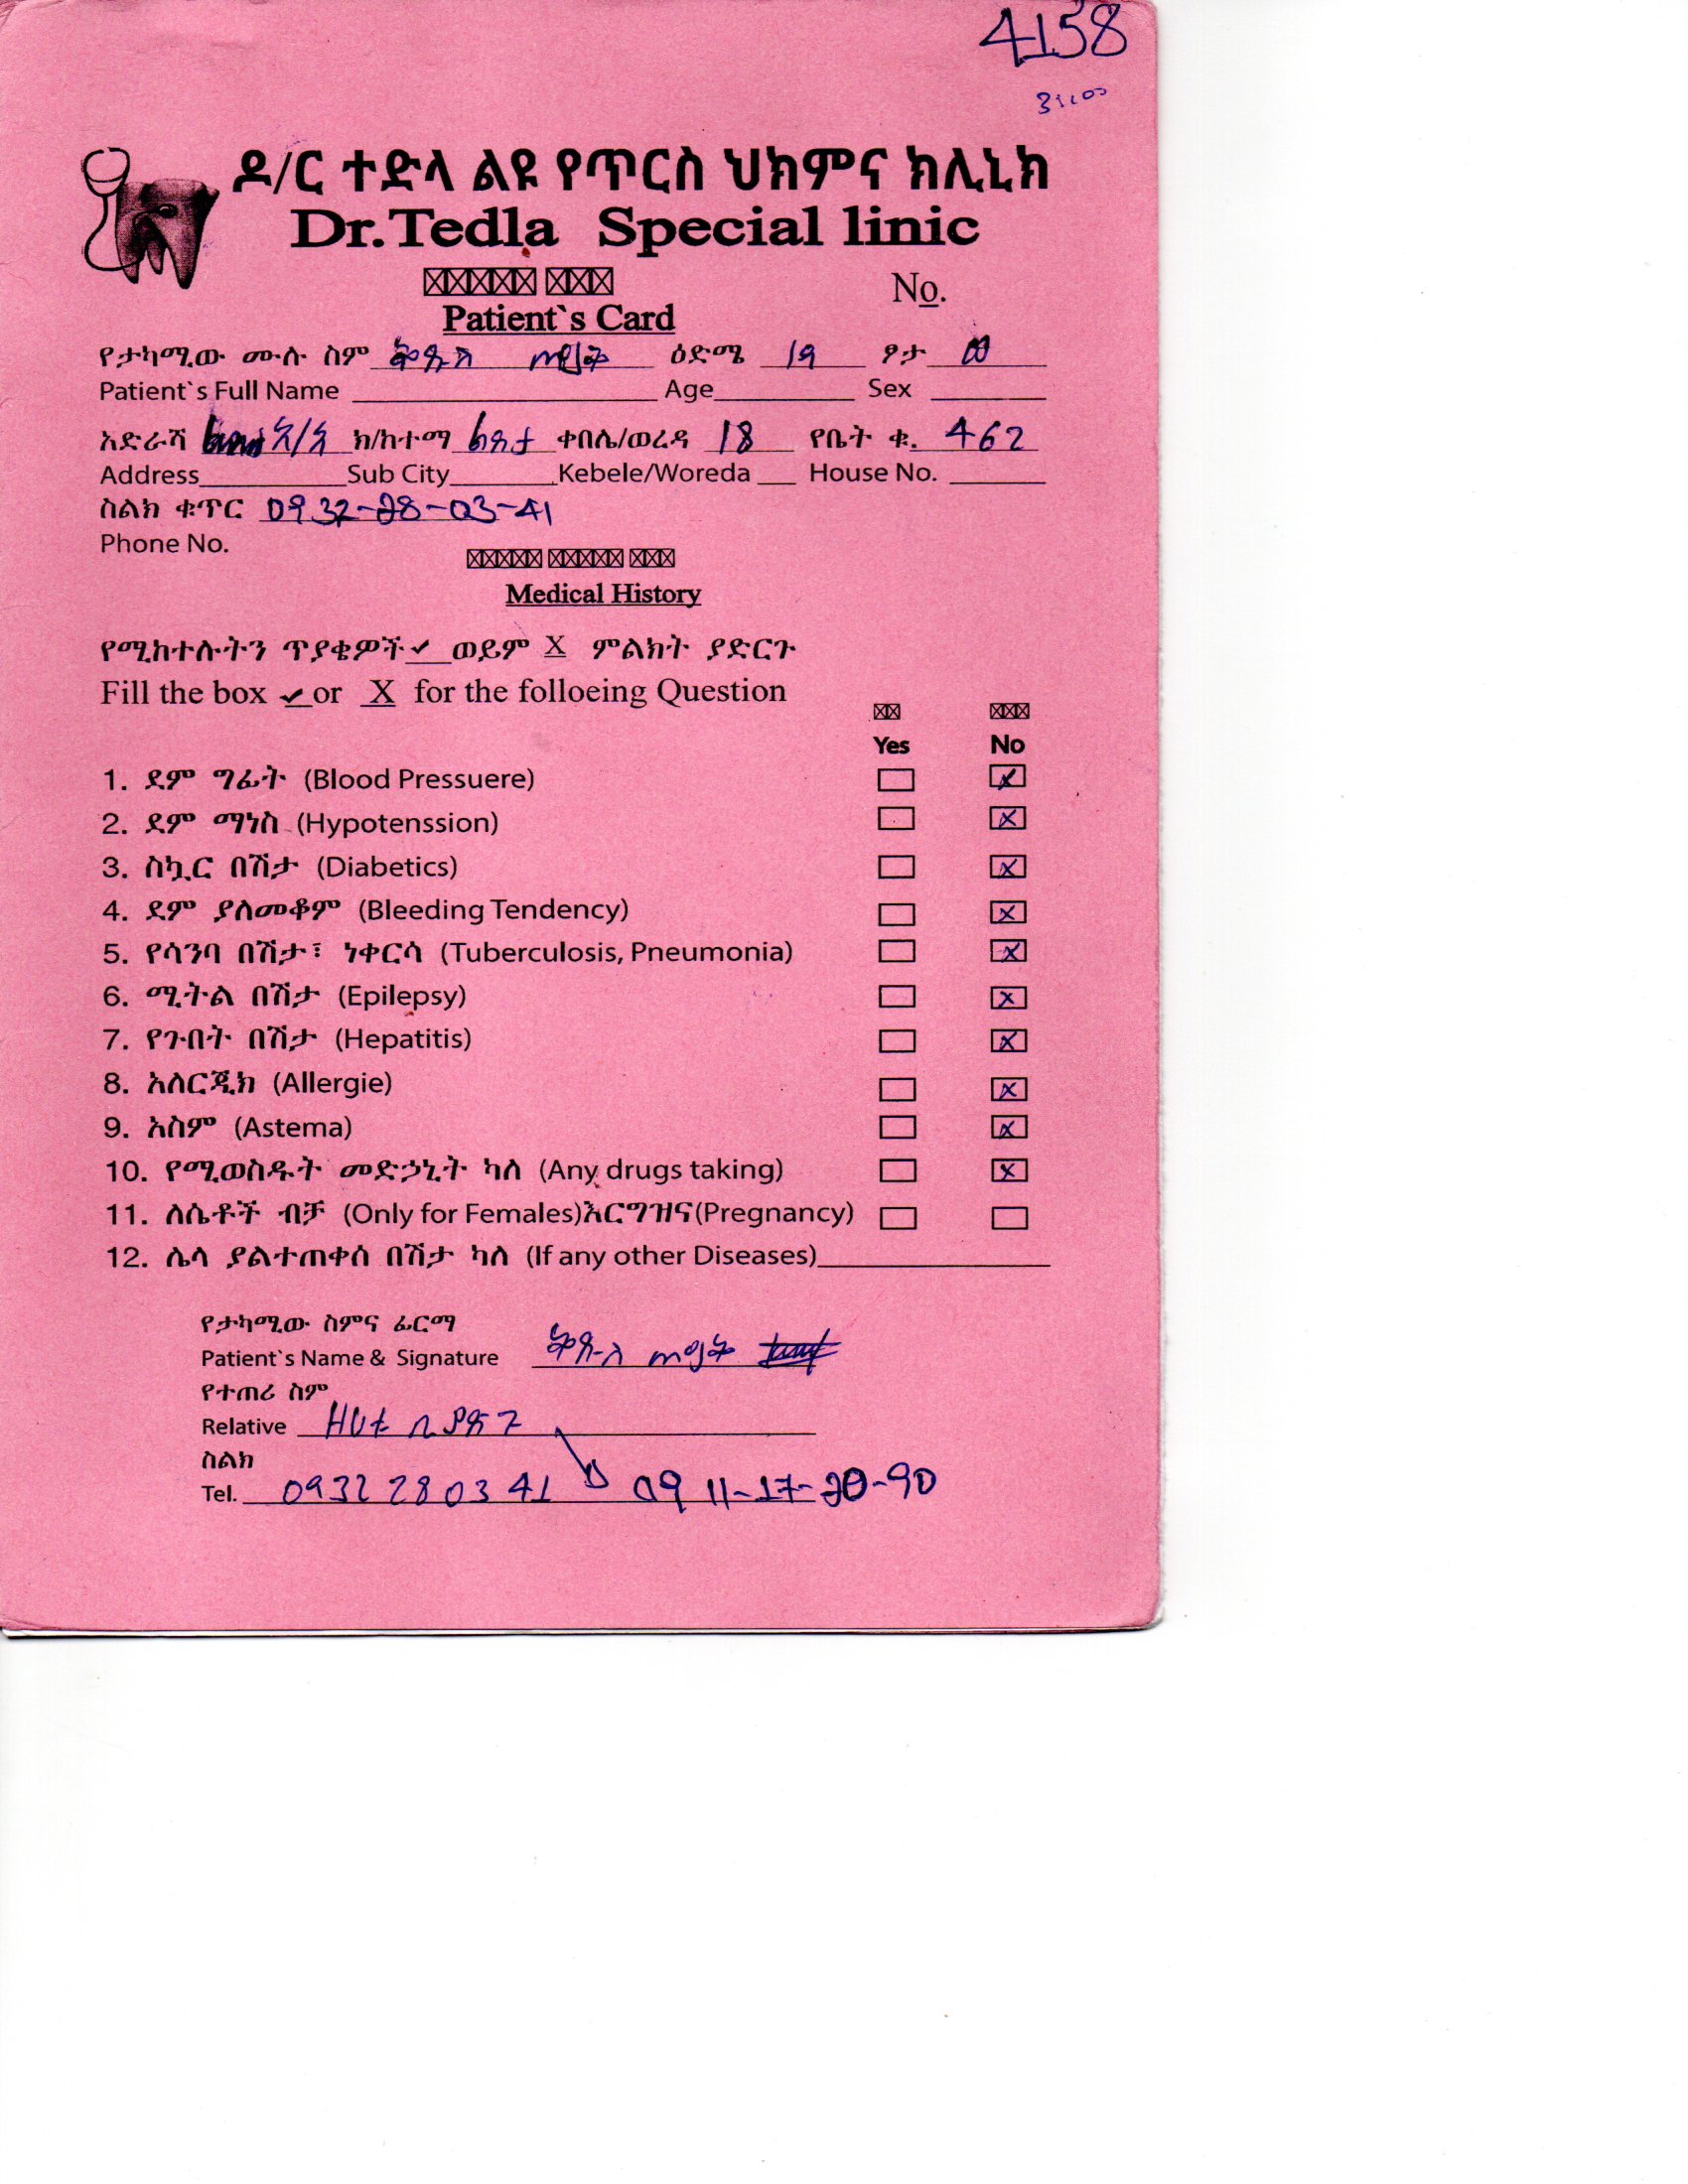 4158
ዶ/ር ተድላ ልዩ የጥርስ ህክምና ክሊኒክ
Dr.Tedla Special linic
No.
Patient`s Card
የታካሚው ሙሉ ስም ዕድሜ 19 ፆታ ወ
Patient`s Full Name Age Sex
አድራሻ አ/አ ክ/ከተማ ልደታ ቀበሌ/ወረዳ 18 የቤት ቁ. 462
Address Sub City Kebele/Woreda House No.
ስልክ ቁጥር 0932-28-03-41
Phone No.
Medical History
የሚከተሉትን ጥያቄዎች ✓ ወይም X ምልክት ያድርጉ
Fill the box ✓ or X for the folloeing Question
Yes No
1. ደም ግፊት (Blood Pressuere)
2. ደም ማነስ (Hypotenssion) X
3. ስኳር በሽታ (Diabetics) X
4. ደም ያለመቆም (Bleeding Tendency) X
5. የሳንባ በሽታ፣ ነቀርሳ (Tuberculosis, Pneumonia) X
6. ሚትል በሽታ (Epilepsy) X
7. የጉበት በሽታ (Hepatitis) X
8. አለርጂክ (Allergie) X
9. አስም (Astema) X
10. የሚወስዱት መድኃኒት ካለ (Any drugs taking) X
11. ለሴቶች ብቻ (Only for Females)እርግዝና(Pregnancy)
12. ሌላ ያልተጠቀሰ በሽታ ካለ (If any other Diseases)
የታካሚው ስምና ፊርማ
Patient`s Name & Signature
የተጠሪ ስም
Relative
ስልክ
Tel. 0932280341 0911-17-20-90